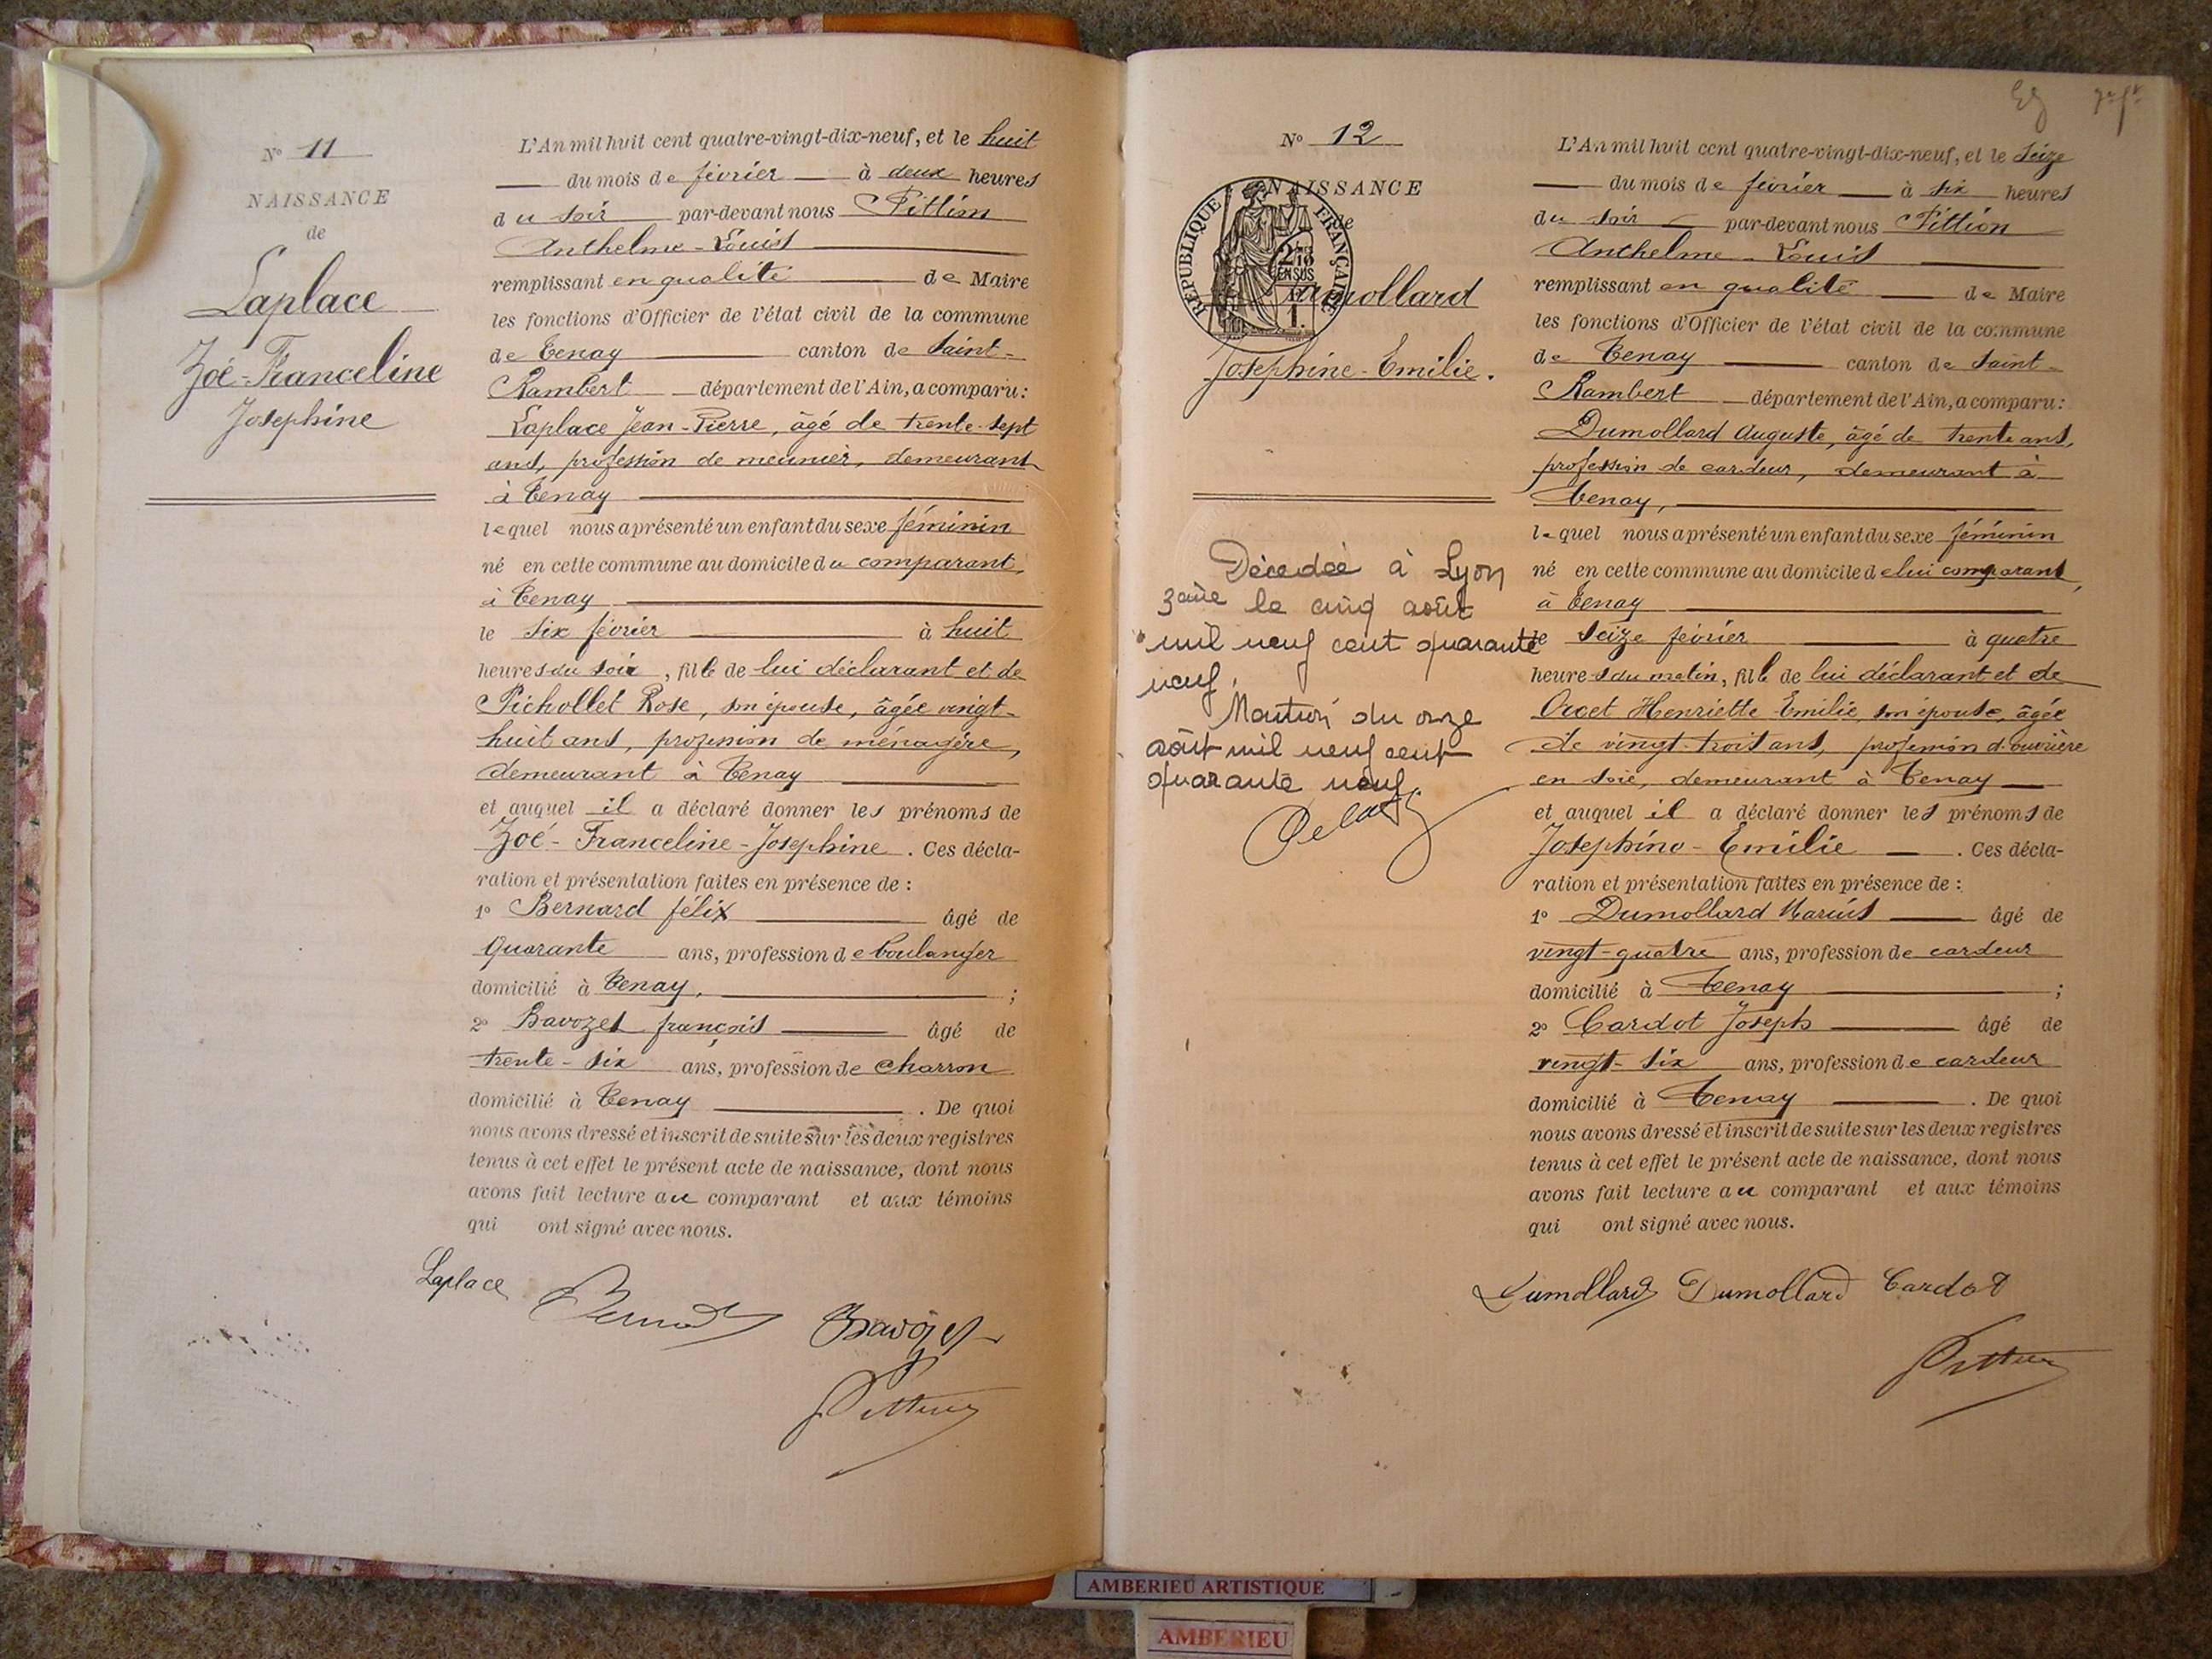 N° 11
NAISSANCE
de
Laplace
Zoé-Franceline
Josephine
L'An mil huit cent quatre-vingt-dix-neuf, et le huit
du mois de février à deux heures
du soir par-devant nous Pittion
Anthelme-Louis
remplissant en qualité de Maire
les fonctions d'Officier de l'état civil de la commune
de Tenay canton de Saint-
Rambert département de l'Ain, a comparu:
Laplace Jean-Pierre, âgé de trente-sept
ans, profession de meunier, demeurant
à Tenay
lequel nous a présenté un enfant du sexe féminin
né en cette commune au domicile du comparant,
à Tenay
le six février à huit
heures du soir, fille de lui déclarant et de
Pichollet Rose, son épouse, âgée vingt-
huit ans, profession de ménagère,
demeurant à Tenay
et auquel il a déclaré donner les prénoms de
Zoé-Franceline-Josephine. Ces décla-
ration et présentation faites en présence de :
1° Bernard félix âgé de
quarante ans, profession de boulanger
domicilié à Tenay, ;
2° Bavozet françois âgé de
trente-six ans, profession de charron
domicilié à Tenay . De quoi
nous avons dressé et inscrit de suite sur les deux registres
tenus à cet effet le présent acte de naissance, dont nous
avons fait lecture au comparant et aux témoins
qui ont signé avec nous.
Laplace Bernard Bavozet
Pittion
N° 12
NAISSANCE
de
REPUBLIQUE FRANÇAISE
Dumollard
Josephine-Emilie.
Décedée à Lyon
3ème le cinq août
mil neuf cent quarante
neuf.
Mention du onze
août mil neuf cent
quarante neuf.
L'An mil huit cent quatre-vingt-dix-neuf, et le Seize
du mois de février à six heures
du soir par-devant nous Pittion
Anthelme-Louis
remplissant en qualité de Maire
les fonctions d'Officier de l'état civil de la commune
de Tenay canton de Saint-
Rambert département de l'Ain, a comparu:
Dumollard Auguste, âgé de trente ans,
profession de cardeur, demeurant à
Tenay,
lequel nous a présenté un enfant du sexe féminin
né en cette commune au domicile de lui comparant,
à Tenay
le Seize février à quatre
heures du matin, fille de lui déclarant et de
Orcet Henriette Emilie, son épouse, âgée
de vingt-trois ans, profession d'ouvrière
en soie, demeurant à Tenay
et auquel il a déclaré donner les prénoms de
Joséphine-Emilie . Ces décla-
ration et présentation faites en présence de :
1° Dumollard Marius âgé de
vingt-quatre ans, profession de cardeur
domicilié à Tenay ;
2° Cardot Joseph âgé de
vingt-six ans, profession de cardeur
domicilié à Tenay . De quoi
nous avons dressé et inscrit de suite sur les deux registres
tenus à cet effet le présent acte de naissance, dont nous
avons fait lecture au comparant et aux témoins
qui ont signé avec nous.
Dumollard Dumollard Cardot
Pittion
AMBERIEU ARTISTIQUE
AMBERIEU